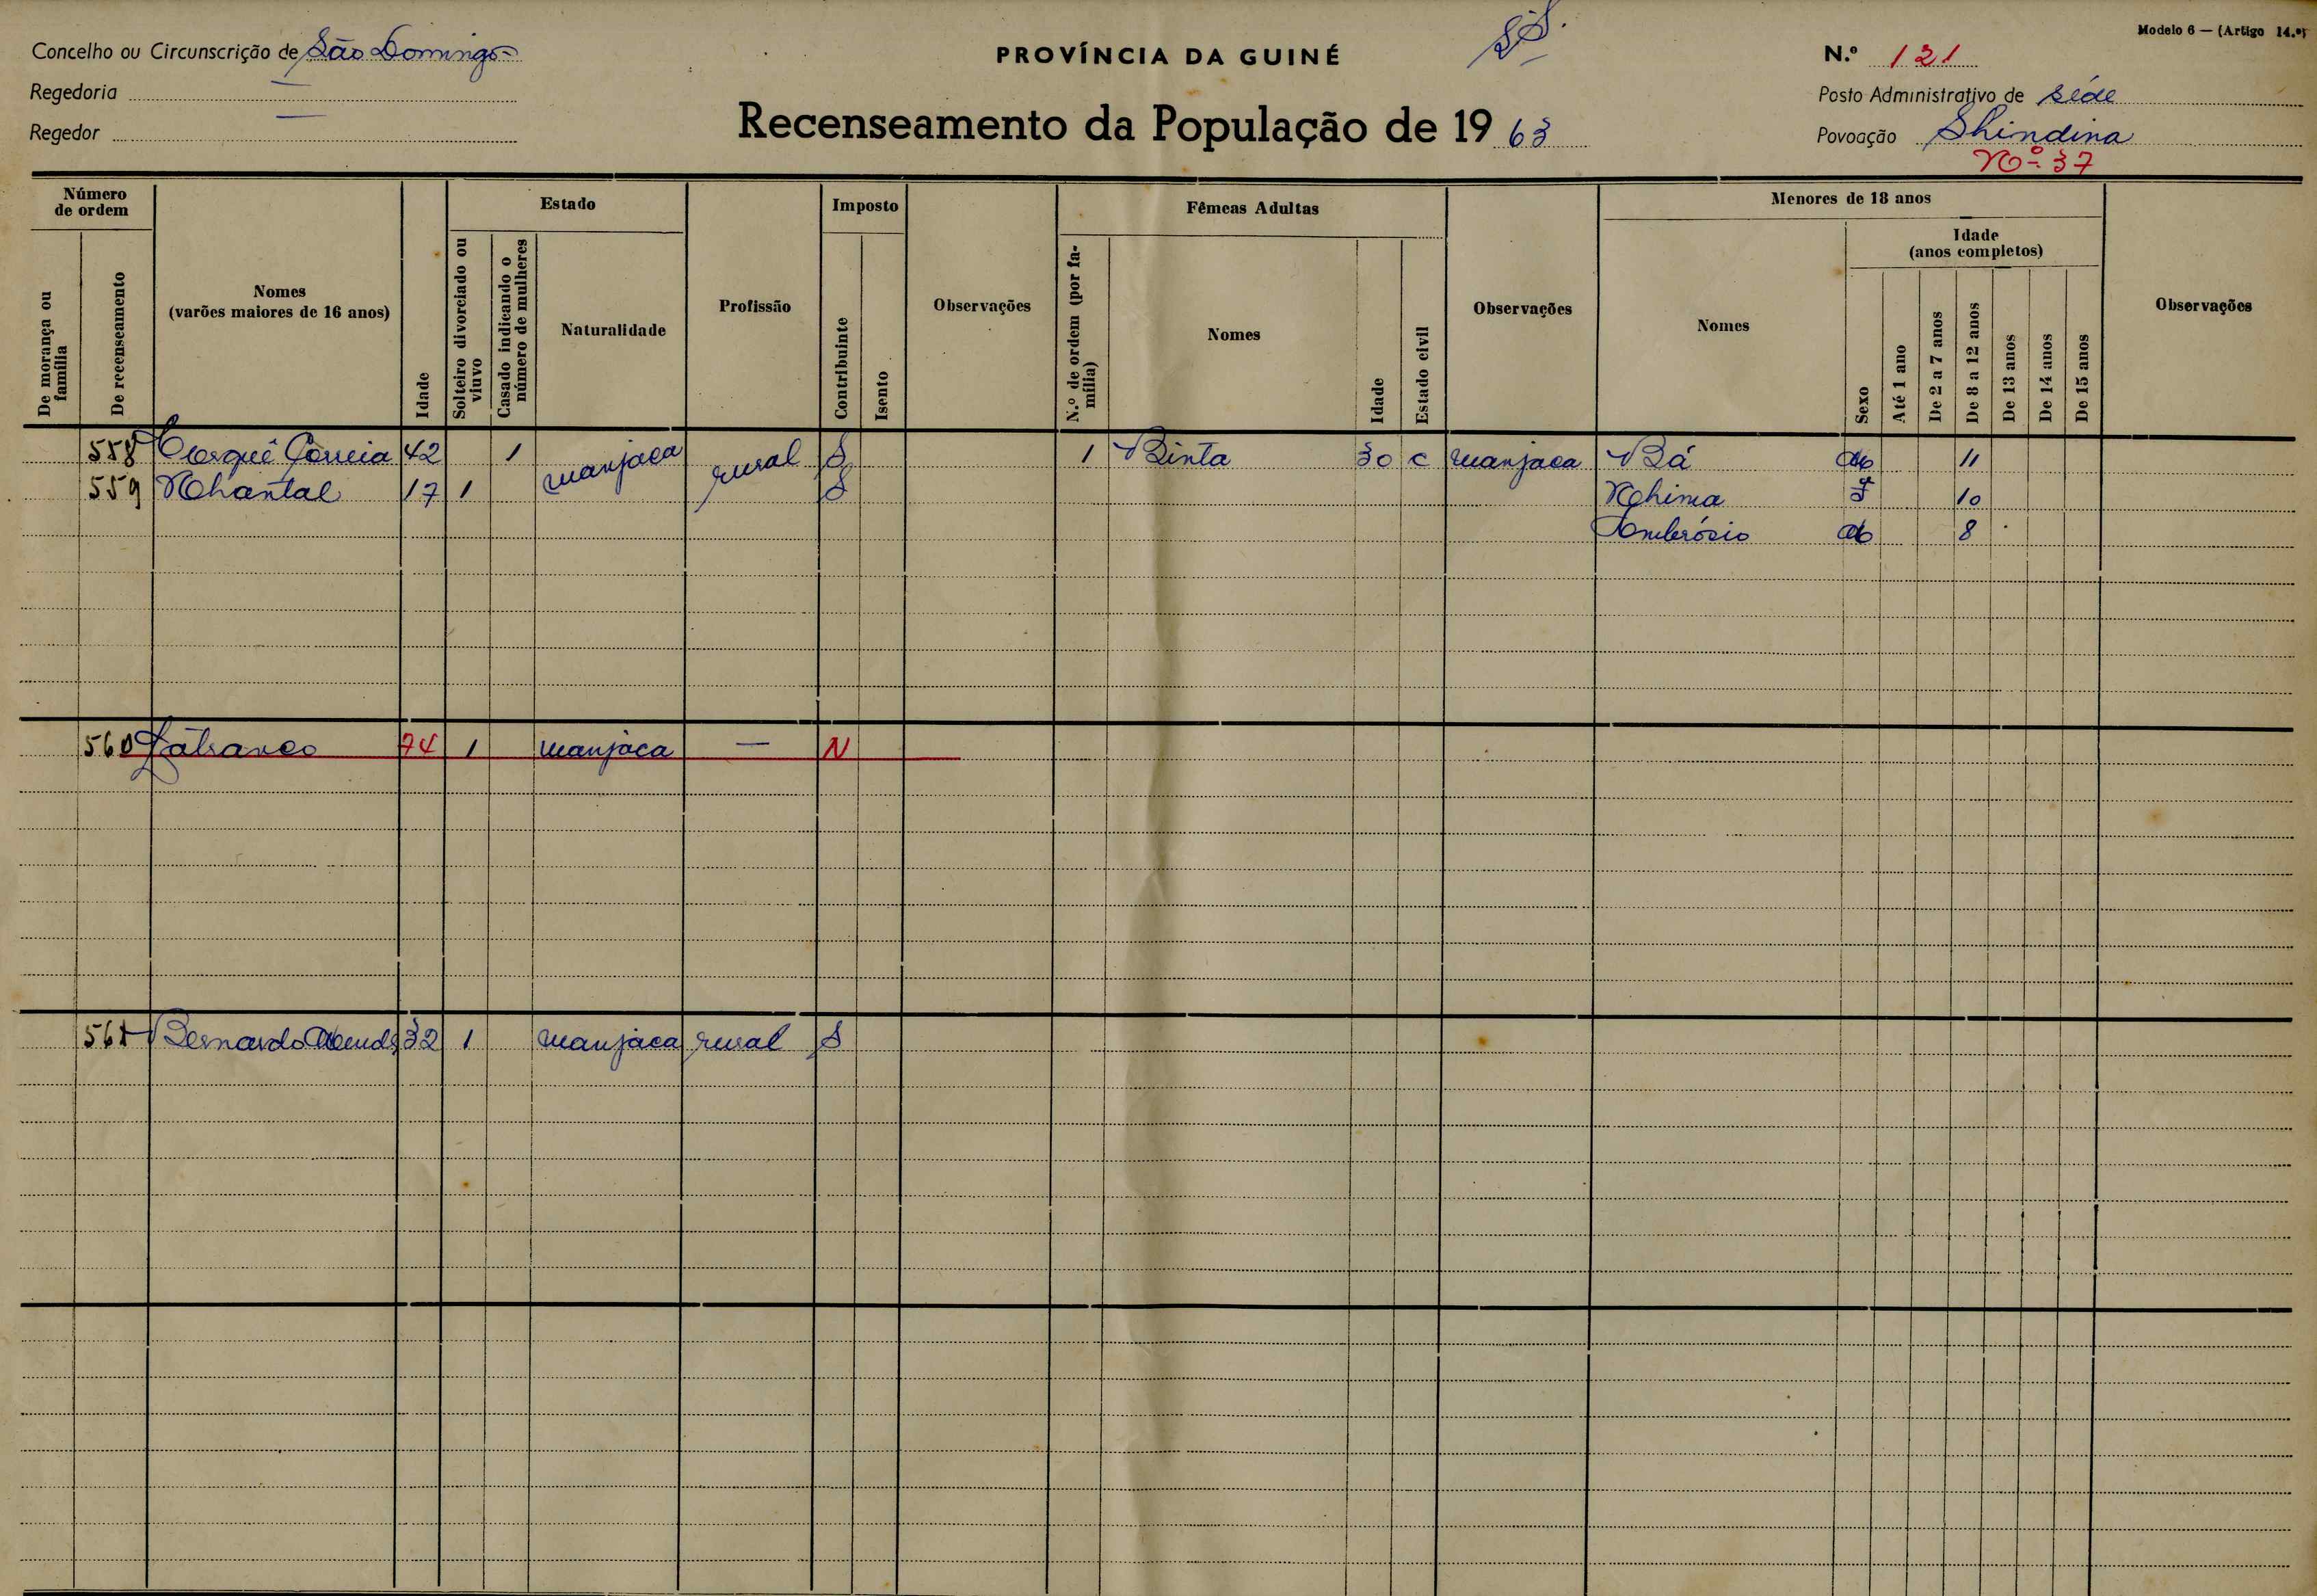 Modelo 6 — (Artigo 14.º)
Concelho ou Circunscrição de São Domingos
PROVÍNCIA DA GUINÉ
N.º 121
Regedoria —
Posto Administrativo de séde
Regedor —
Recenseamento da População de 1963
Povoação Shindina
Nº 37
Número de ordem
De morança ou família
De recenseamento
Nomes
(varões maiores de 16 anos)
Idade
Estado
Solteiro divorciado ou viuvo
Casado indicando o número de mulheres
Naturalidade
Profissão
Imposto
Contribuinte
Isento
Observações
Fêmeas Adultas
N.º de ordem (por família)
Nomes
Idade
Estado civil
Observações
Menores de 18 anos
Nomes
Sexo
Idade
(anos completos)
Até 1 ano
De 2 a 7 anos
De 8 a 12 anos
De 13 anos
De 14 anos
De 15 anos
Observações
558 Correia 42 1 manjaca rural S 1 Binta 30 c manjaca Bá M 11
559 Nhantal 17 1 S Nhima F 10
Ambrósio M 8
560 74 1 manjaca — N
561 Bernardo Mendes 32 1 manjaca rural S